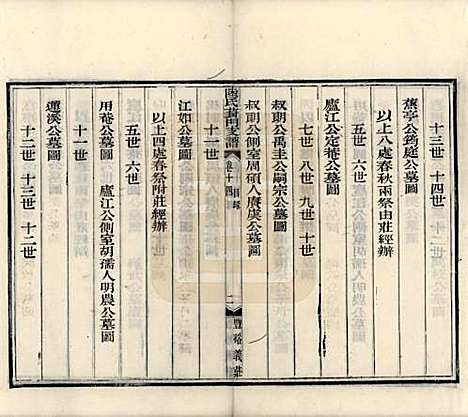 十三世　十四世
蕉亭公筠庭公墓圖
以上八處春秋兩祭由莊經辦
五世　六世
廬江公定菴公墓圖
七世　八世　九世　十世
叔明公禹圭公嗣宗公墓圖
叔明公側室周碩人賡虞公墓圖
陶氏菖門支譜　卷十四　目錄　二　豐裕義莊
十一世
江如公墓圖
以上四處春祭附莊經辦
五世　六世
用菴公墓圖　廬江公側室胡孺人明農公墓圖
十一世
蓮溪公墓圖
十二世　十三世　十二世